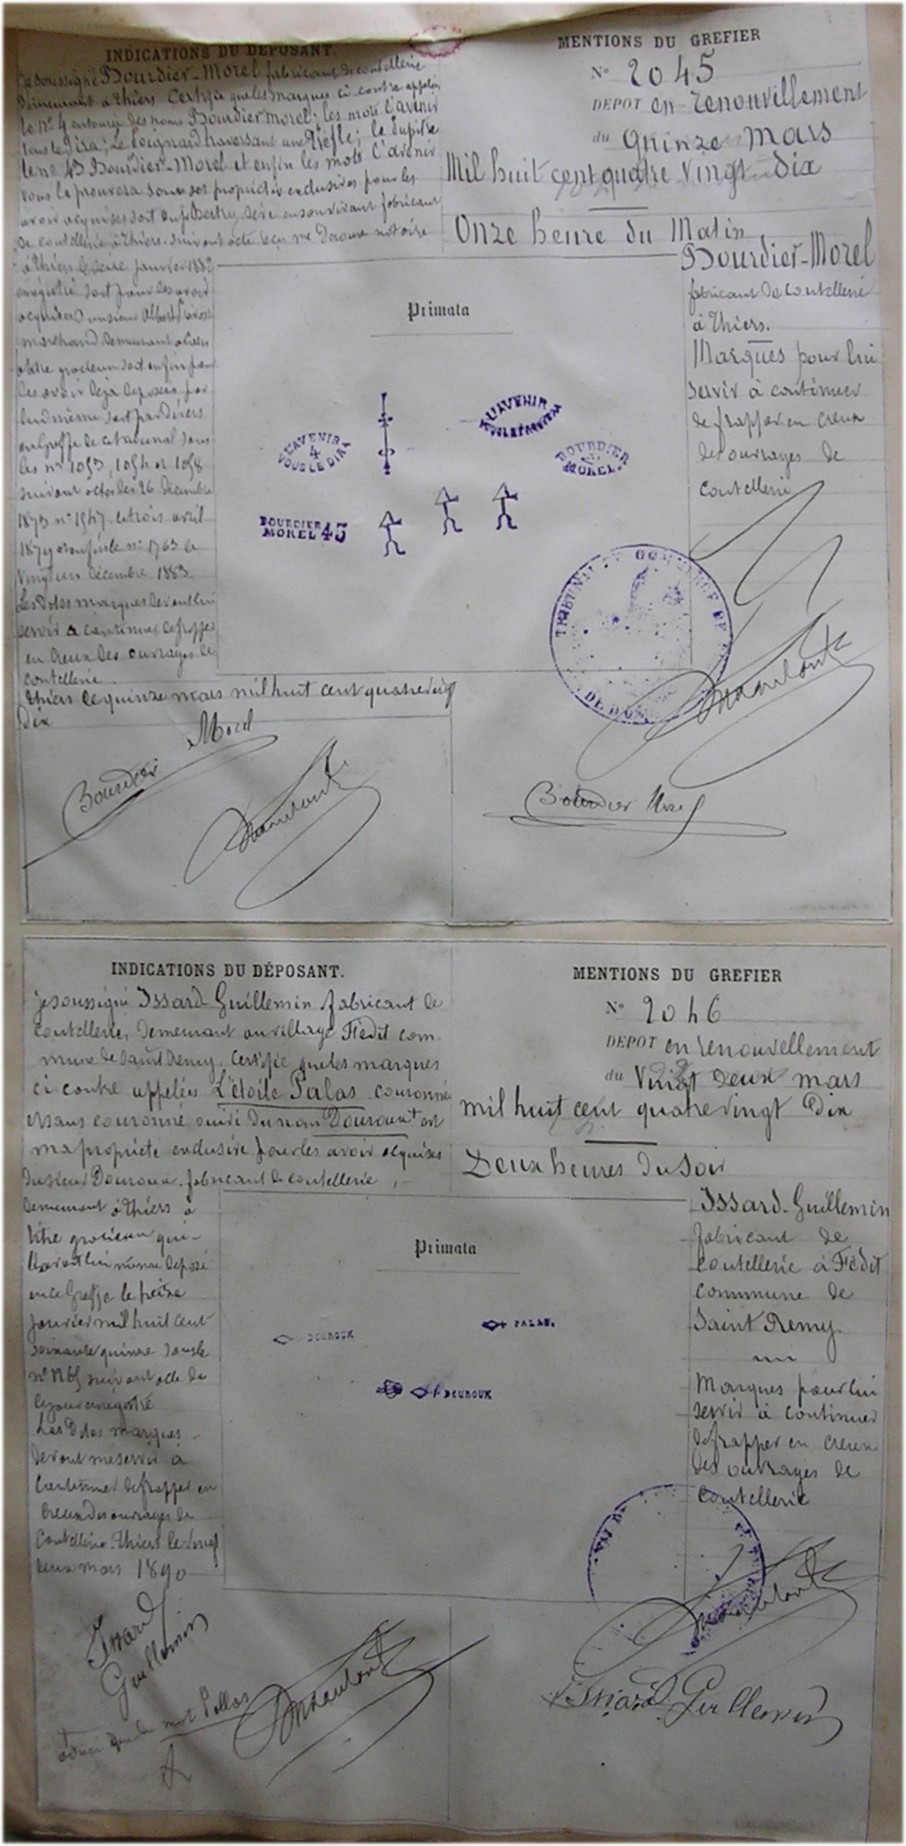 INDICATIONS DU DÉPOSANT.
Je soussigné Bourdier-Morel fabricant de coutellerie
demeurant à Thiers certifie que les marques ci contre appelées
le N° 4 entouré des noms Bourdier morel; les mots L'avenir
vous le dira; Le Poignard traversant une ; le Jupitre
le no 45 Bourdier-Morel et enfin les mots L'avenir
vous le prouvera sont ses propriétés exclusives pour les
avoir acquises soit du fabricant
de coutellerie à Thiers suivant acte reçu Me notaire
à Thiers le seize janvier 1882
enregistré soit pour les avoir
acquises Monsieur Albert
marchand demeurant
à titre gracieux soit enfin pour
les avoir déjà déposés par
lui même soit par divers
au Greffe de ce tribunal sous
les nos 1053, 1054 et 1058
suivant actes des 26 décembre
1873 n° 1547 le trois avril
1879 et enfin le n° 1763 le
vingt un décembre 1883.
Les dites marques devant lui
servir à continuer de frapper
en creux des ouvrages de
coutellerie
Thiers le quinze mars mil huit cent quatre vingt
dix
Bourdier Morel
MENTIONS DU GREFIER
N° 2045
DEPOT en renouvillement
du Quinze Mars
Mil huit cent quatre vingt dix
Onze heure du Matin
Bourdier-Morel
fabricant de coutellerie
à Thiers.
Marques pour lui
servir à continuer
de frapper en creux
des ouvrages de
coutellerie
Primata
L'AVENIR
4
VOUS LE DIRA
L'AVENIR
VOUS LE PROUVERA
BOURDIER
MOREL
BOURDIER
MOREL 45
TRIBUNAL DE COMMERCE
Bourdier Morel
INDICATIONS DU DÉPOSANT.
je soussigné Issard Guillemin fabricant de
coutellerie, demeurant au village Fédit com-
mune de Saint Remy, certifie que les marques
ci contre appelées L'étoile Palas couronné
et sans couronné suivi du nom Douroux est
ma propriété exclusive pour les avoir acquises
du sieur Douroux fabricant de coutellerie,
demeurant à Thiers à
titre gracieux qui
l'avait lui même déposé
en ce Greffe le
janvier mil huit cent
soixante quinze sous le
n° suivant acte de
ce jour enregistré
Les dites marques
devant me servir à
continuer de frapper en
creux des ouvrages de
coutellerie. Thiers le vingt
deux mars 1890
Issard
Guillemin
mot Pallas
MENTIONS DU GREFIER
N° 2046
DEPOT en renouvellement
du Vingt deux mars
mil huit cent quatre vingt Dix
Deux heures du Soir
Issard-Guillemin
fabricant de
coutellerie à Fédit
commune de
Saint Remy.
Marques pour lui
servir à continuer
de frapper en creux
des ouvrages de
coutellerie
Primata
DOUROUX
PALAS.
DOUROUX
Issard Guillemin